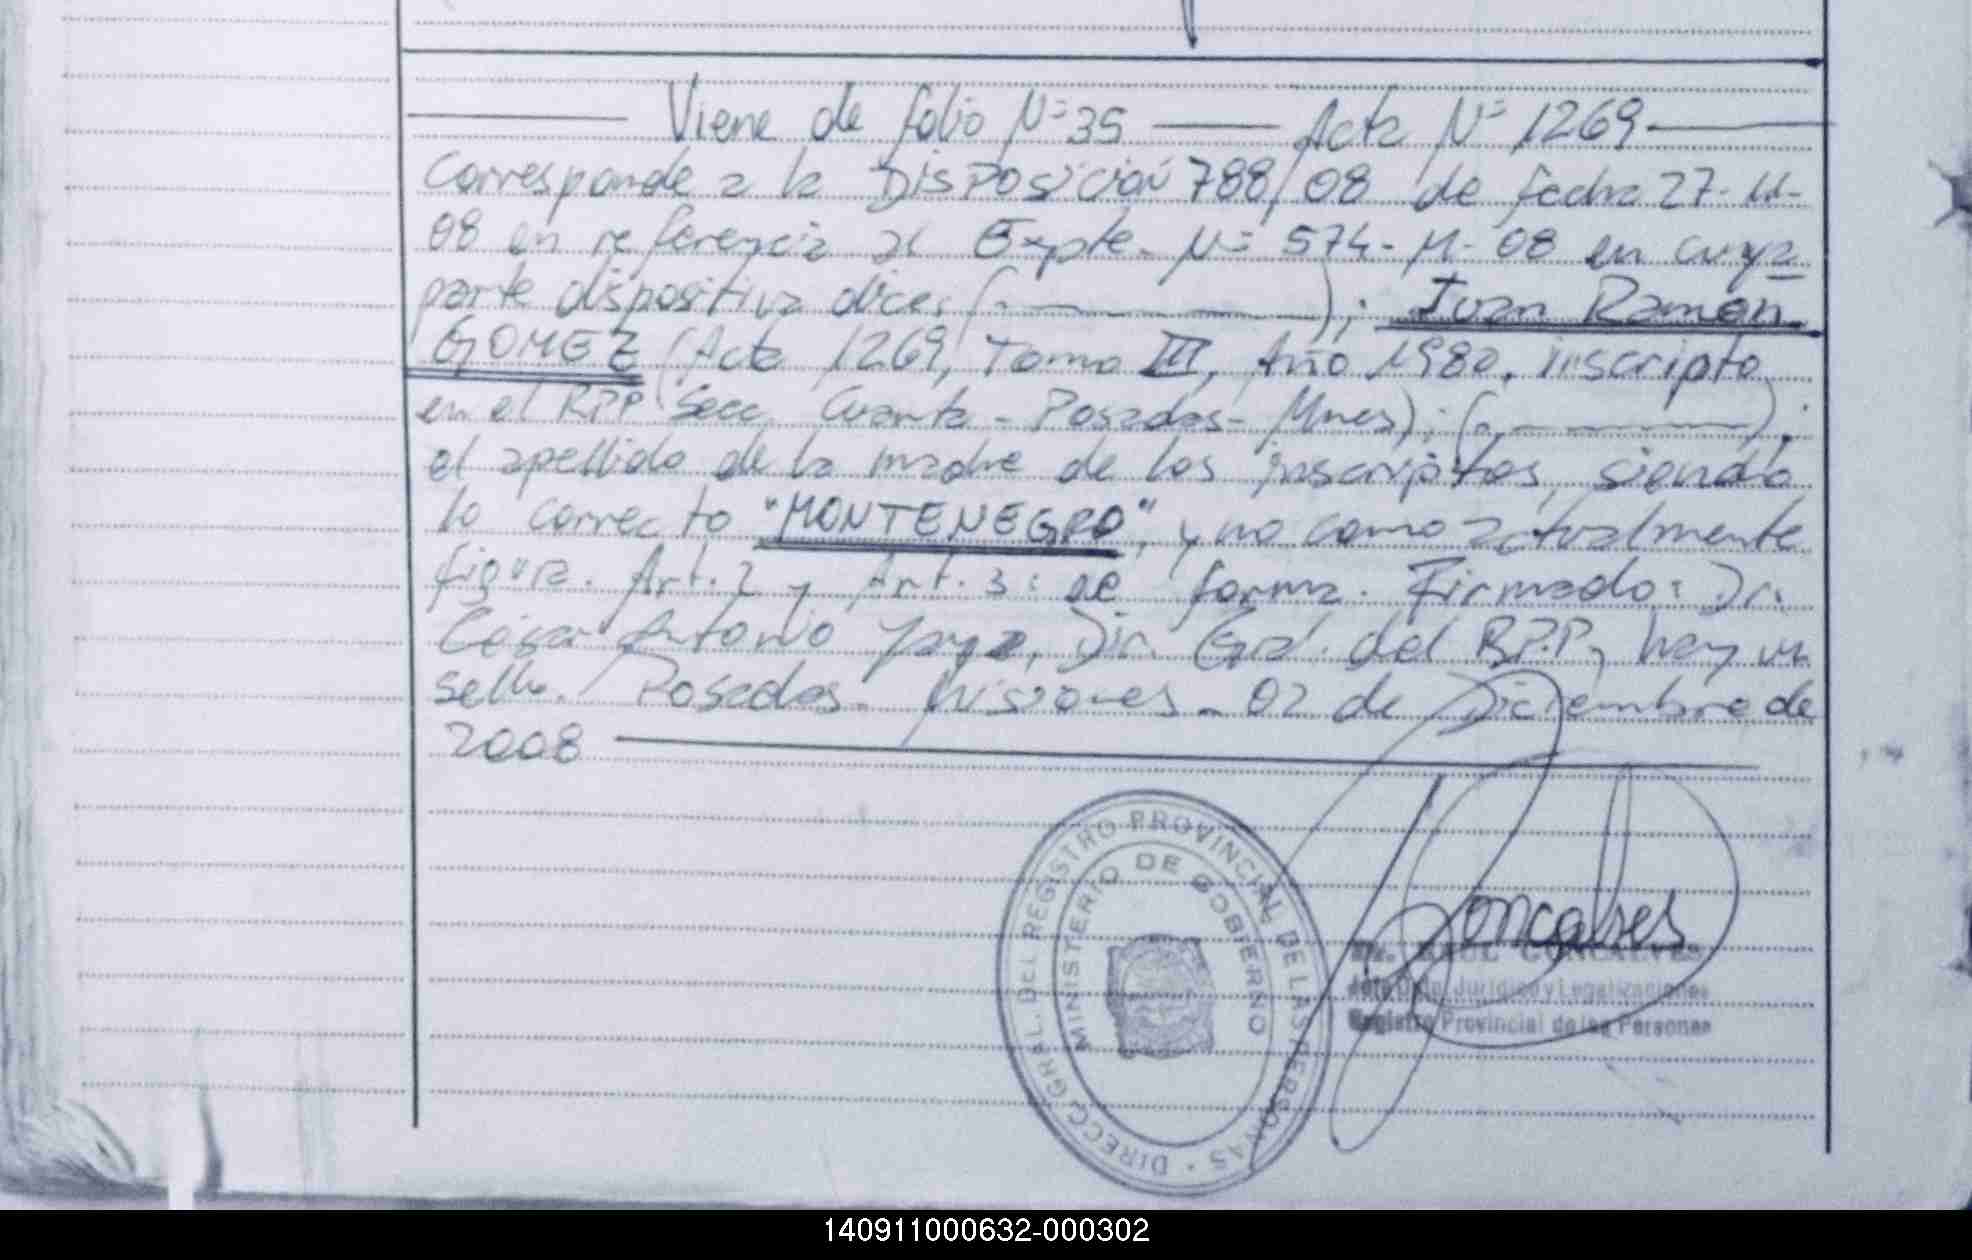 Viene de folio Nº 35 — Acta Nº 1269
Corresponde a la Disposición 788/08 de fecha 27-11-
08 en referencia al Expte. Nº 574-M-08 en cuya
parte dispositiva dice: (- — — —); Juan Ramon
GOMEZ (Acta 1269, Tomo III, Año 1980, inscripto
en el RPP Secc. Cuarta - Posadas - Mnes); (- — — —);
el apellido de la madre de los inscriptos, siendo
lo correcto "MONTENEGRO", y no como actualmente
figura. Art. 2 y Art. 3: de forma. Firmado: Dr.
César Antonio Dir. Gral. del RPP, hay un
sello. Posadas - Misiones - 02 de Diciembre de
2008
DIRECC. GRAL. DEL REGISTRO PROVINCIAL DE LAS PERSONAS
MINISTERIO DE GOBIERNO
Goncalves
Dr. RAUL GONCALVES
Jefe Dpto. Jurídico y Legalizaciones
Registro Provincial de las Personas
140911000632-000302